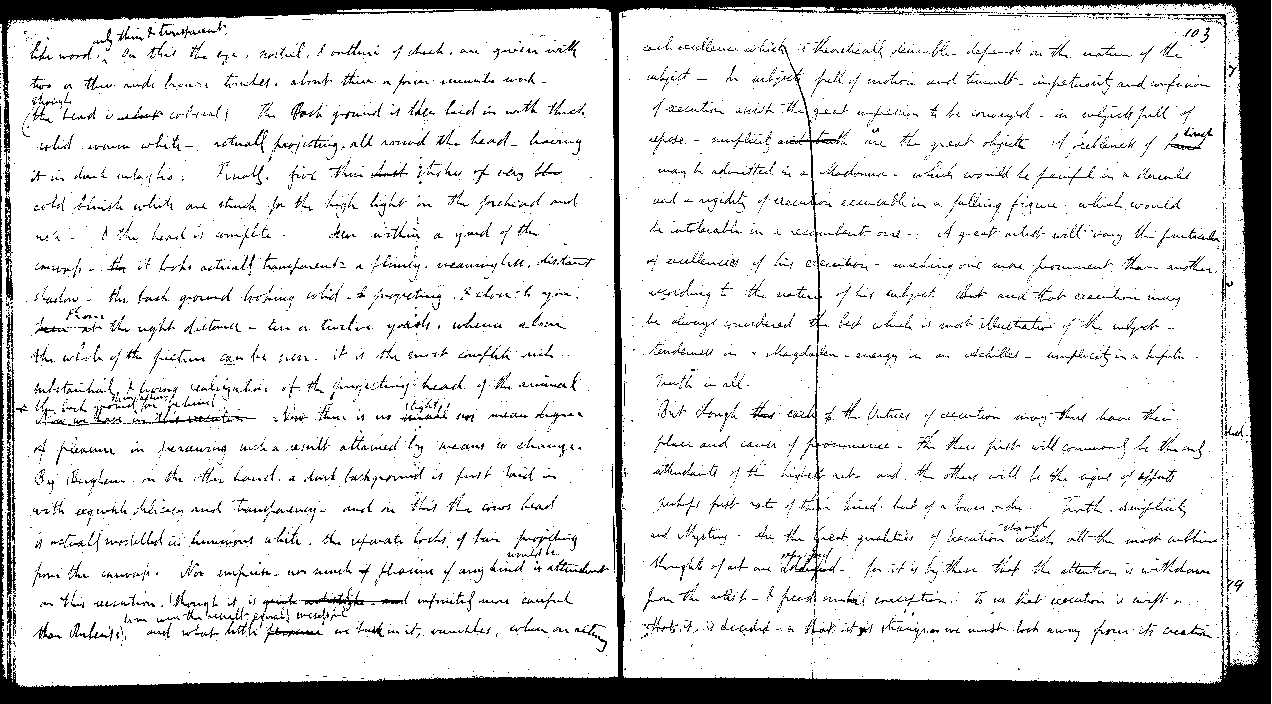 only thin & transparent
like wood. On this the eye, nostril, & outline of cheek, are given with
two or three rude brown touches, about three or four minutes work –
though
(the head is colossal) The back ground is then laid in with thick
solid, warm white – actually projecting, all round the head – leaving
it in dark intaglio. Finally, five thin strokes of very
cold bluish white are struck for the high light in the forehead and
& the head is complete – Seen within a yard of the
canvass – it looks actually transparent – a flimsy, meaningless, distant
shadow – the back ground looking solid – & projecting, & close to you.
From
the right distance – ten or twelve yards, whence alone
the whole of the picture can be seen, it is the most complete rich
substantial, & living realization of the projecting head of the animal
the back ground far behind
Now there is no slight nor mean degree
of pleasure in perceiving such a result attained by means so strange.
By Berghem, on the other hand, a dark background is first laid in
with exquisite delicacy and transparency – and on this the cows head
is actually modelled in luminous white, the separate locks of hair projecting
from the canvass. No surprise – nor much of pleasure of any kind is attendant
on this execution, though it is quite and infinitely more careful
were the result equally successful
than and what little pleasure we had in it, vanishes, when on retiring
103
each excellence which is theoretically desirable depends on the nature of the
subject – In subjects full of motion and tumult – impetuosity and confusion
of execution assist the great impression to be conveyed – in subjects full of
repose – simplicity and truth are the great objects A delicacy of touch
may be admitted in a Madonna – which would be painful in a Hercules
and a rigidity of execution excusable in a falling figure, which would
be intolerable in a recumbent one – A great artist will vary the particular
of excellences of his execution – making one more prominent than another,
according to the nature of his subject But and that execution may
be always considered the best which is most illustrative of the subject –
tenderness in a Magdalen – energy in an Achilles – simplicity in a
Truth in all.
But though each of the virtues of execution may thus have their
place and cause of prominence – the three first will commonly be the only
attendants of the highest art and the others will be the signs of efforts
perhaps first rate of their kind, but of a lower order. Truth – simplicity
and Mystery – are the great qualities of execution through which all the most sublime
thoughts of art are – for it is by these that the attention is withdrawn
from the artist – & fixed on his conception. In so that execution is swift or
that it is decided – or that it is strange, we must look away from its creation